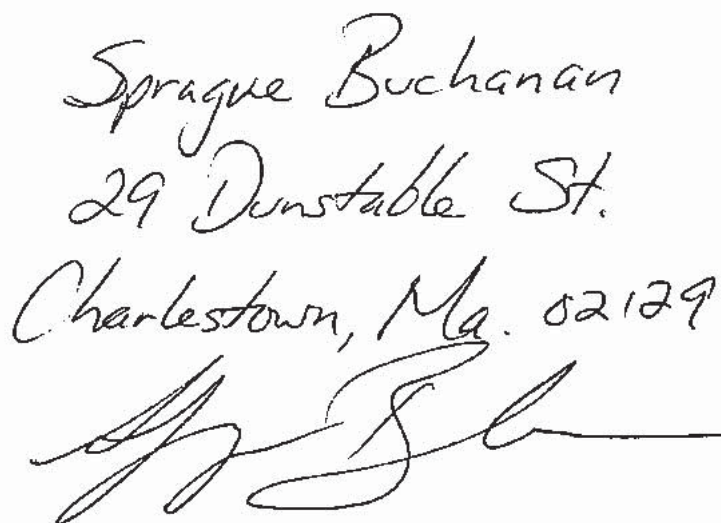 Sprague Buchanan
29 Dunstable St.
Charlestown, Ma. 02129